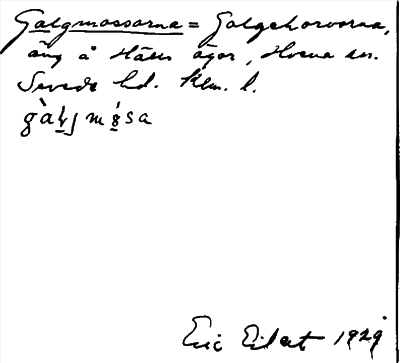 Galgmossorna = Galgehorvorna,
äng å Hälls ägor, Horna sn.
Sevede hd. Klm. l.
Eric Eilert 1929